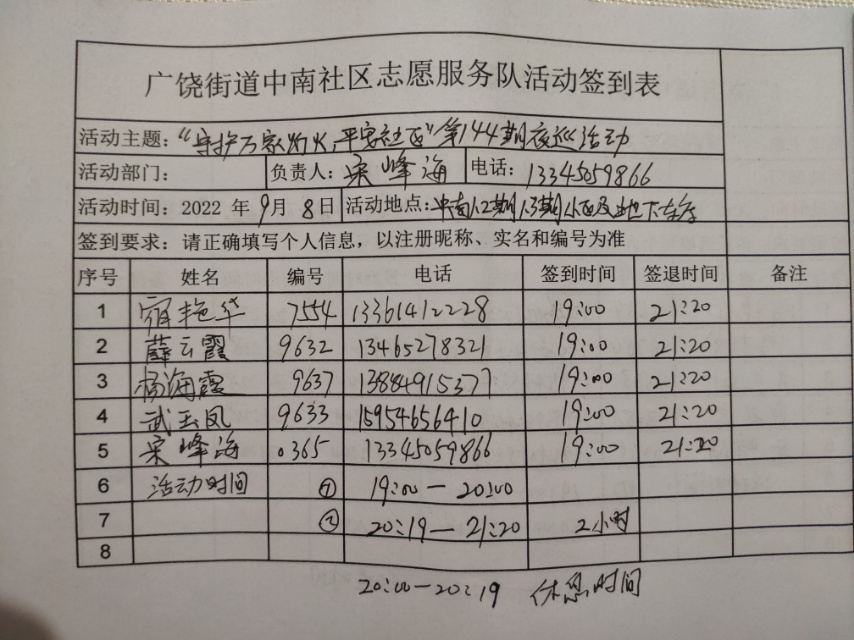 广饶街道中南社区志愿服务队活动签到表
活动主题：“守护万家灯火，平安社区”第144期夜巡活动
活动部门： 负责人：宋峰海 电话：13345059866
活动时间：2022 年 9月 8日 活动地点：中南1.2期1.3期小区及地下车库
签到要求：请正确填写个人信息，以注册昵称、实名和编号为准
序号 姓名 编号 电话 签到时间 签退时间 备注
1 宿艳华 7554 13361412228 19:00 21:20
2 薛云霞 9632 13465278321 19:00 21:20
3 杨海霞 9637 13884915377 19:00 21:20
4 武玉凤 9633 15954656410 19:00 21:20
5 宋峰海 0365 13345059866 19:00 21:20
6 活动时间 ① 19:00—20:00
7 ② 20:19—21:20 2小时
8
20:00—20:19 休息时间